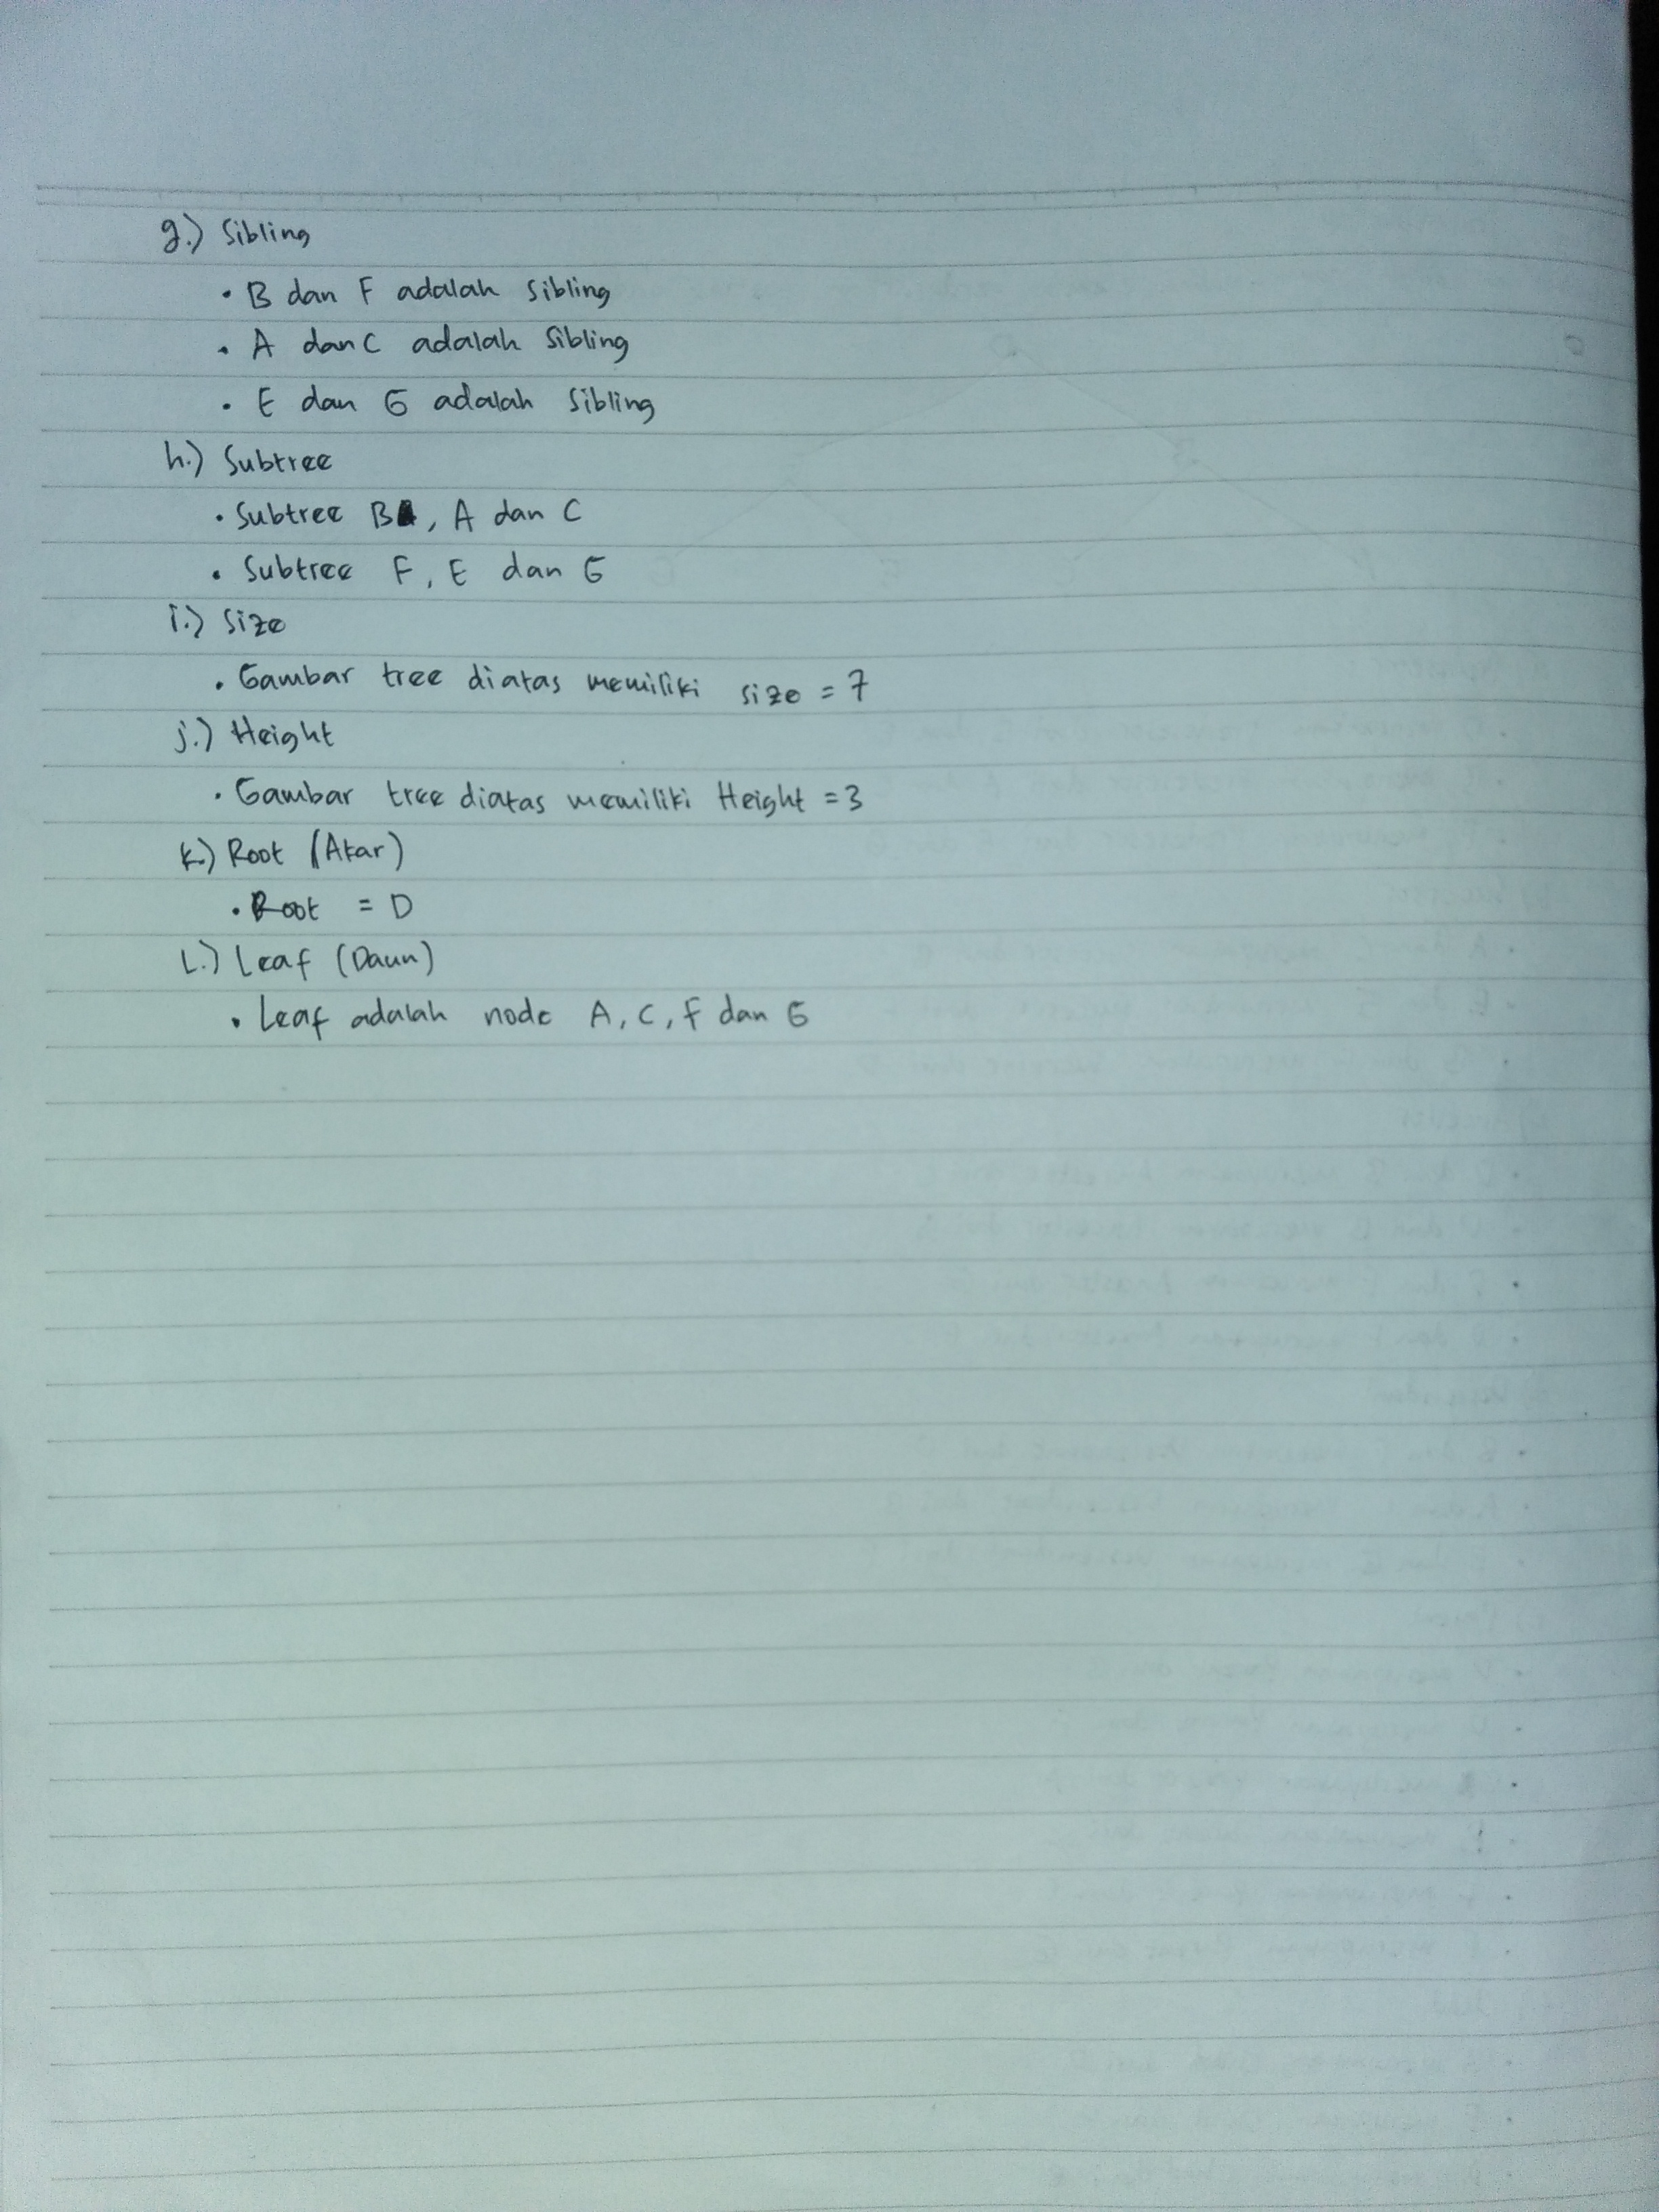 g.) Sibling
• B dan F adalah Sibling
• A dan C adalah Sibling
• E dan G adalah Sibling
h.) Subtree
• Subtree B, A dan C
• Subtree F, E dan G
i.) Size
• Gambar tree diatas memiliki size = 7
j.) Height
• Gambar tree diatas memiliki Height = 3
k.) Root (Akar)
• Root = D
L.) Leaf (Daun)
• Leaf adalah node A, C, F dan G